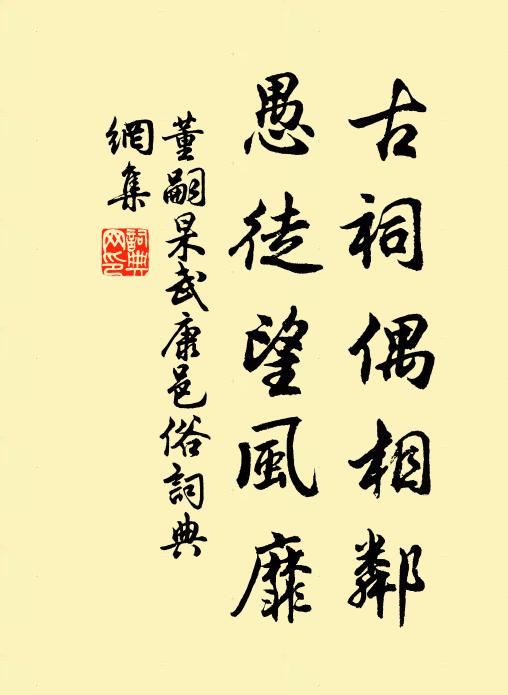 古祠偶相鄰
愚徒望風靡
董嗣杲武康邑俗詞典
網集
詞典網印